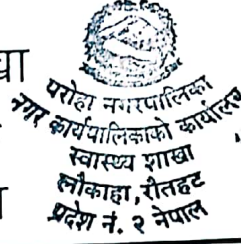 परोहा नगरपालिका
नगर कार्यपालिकाको कार्यालय
स्वास्थ्य शाखा
लौकाहा, रौतहट
प्रदेश नं. २ नेपाल